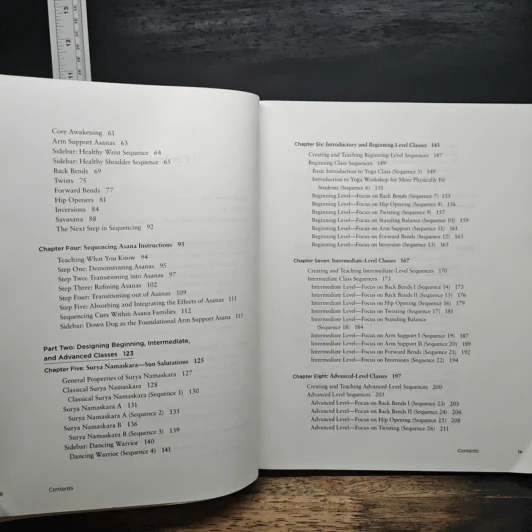 13
12
11
Core Awakening 61
Arm Support Asanas 63
Sidebar: Healthy Wrist Sequence 64
Sidebar: Healthy Shoulder Sequence 65
Back Bends 69
Twists 75
Forward Bends 77
Hip Openers 81
Inversions 84
Savasana 88
The Next Step in Sequencing 92
Chapter Four: Sequencing Asana Instructions 93
Teaching What You Know 94
Step One: Demonstrating Asanas 95
Step Two: Transitioning into Asanas 97
Step Three: Refining Asanas 102
Step Four: Transitioning out of Asanas 109
Step Five: Absorbing and Integrating the Effects of Asanas 111
Sequencing Cues Within Asana Families 112
Sidebar: Down Dog as the Foundational Arm Support Asana 115
Part Two: Designing Beginning, Intermediate,
and Advanced Classes 123
Chapter Five: Surya Namaskara—Sun Salutations 125
General Properties of Surya Namaskara 127
Classical Surya Namaskara 128
Classical Surya Namaskara (Sequence 1) 130
Surya Namaskara A 131
Surya Namaskara A (Sequence 2) 133
Surya Namaskara B 136
Surya Namaskara B (Sequence 3) 139
Sidebar: Dancing Warrior 140
Dancing Warrior (Sequence 4) 141
Contents
Chapter Six: Introductory and Beginning-Level Classes 145
Creating and Teaching Beginning-Level Sequences 147
Beginning Class Sequences 149
Basic Introduction to Yoga Class (Sequence 5) 149
Introduction to Yoga Workshop for More Physically Fit
Students (Sequence 6) 151
Beginning Level—Focus on Back Bends (Sequence 7) 153
Beginning Level—Focus on Hip Opening (Sequence 8) 156
Beginning Level—Focus on Twisting (Sequence 9) 157
Beginning Level—Focus on Standing Balance (Sequence 10) 159
Beginning Level—Focus on Arm Support (Sequence 11) 161
Beginning Level—Focus on Forward Bends (Sequence 12) 163
Beginning Level—Focus on Inversion (Sequence 13) 165
Chapter Seven: Intermediate-Level Classes 167
Creating and Teaching Intermediate-Level Sequences 170
Intermediate Class Sequences 173
Intermediate Level—Focus on Back Bends I (Sequence 14) 173
Intermediate Level—Focus on Back Bends II (Sequence 15) 176
Intermediate Level—Focus on Hip Opening (Sequence 16) 179
Intermediate Level—Focus on Twisting (Sequence 17) 181
Intermediate Level—Focus on Standing Balance
(Sequence 18) 184
Intermediate Level—Focus on Arm Support I (Sequence 19) 187
Intermediate Level—Focus on Arm Support II (Sequence 20) 189
Intermediate Level—Focus on Forward Bends (Sequence 21) 192
Intermediate Level—Focus on Inversions (Sequence 22) 194
Chapter Eight: Advanced-Level Classes 197
Creating and Teaching Advanced-Level Sequences 200
Advanced Level Sequences 203
Advanced Level—Focus on Back Bends I (Sequence 23) 203
Advanced Level—Focus on Back Bends II (Sequence 24) 206
Advanced Level—Focus on Hip Opening (Sequence 25) 208
Advanced Level—Focus on Twisting (Sequence 26) 211
Contents